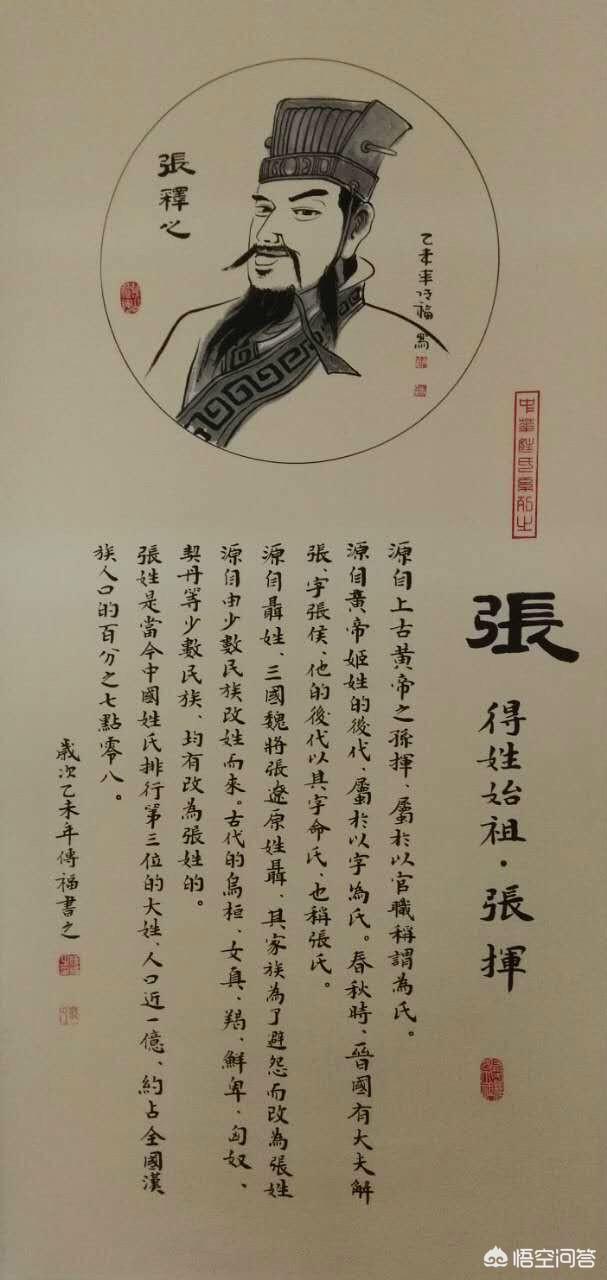 張釋之
乙未年傳福寫
中華姓氏系列之
張
得姓始祖·張揮
源自上古黃帝之孫揮、屬於以官職稱謂為氏。
源自黃帝姬姓的後代、屬於以字為氏。春秋時、晉國有大夫解
張、字張侯、他的後代以其字命氏、也稱張氏。
源自聶姓、三國魏將張遼原姓聶、其家族為了避怨而改為張姓
源自由少數民族改姓而來。古代的烏桓、女真、羯、鮮卑、匈奴、
契丹等少數民族、均有改為張姓的。
張姓是當今中國姓氏排行第三位的大姓、人口近一億、約占全國漢
族人口的百分之七點零八。
歲次乙未年傳福書之
悟空问答